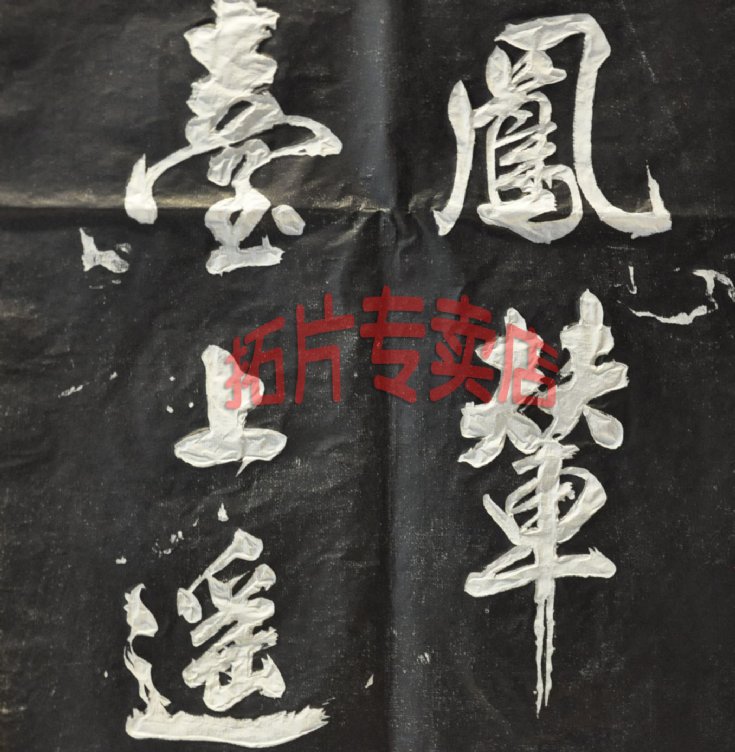 鳳輦
臺上遥
拓片专卖店